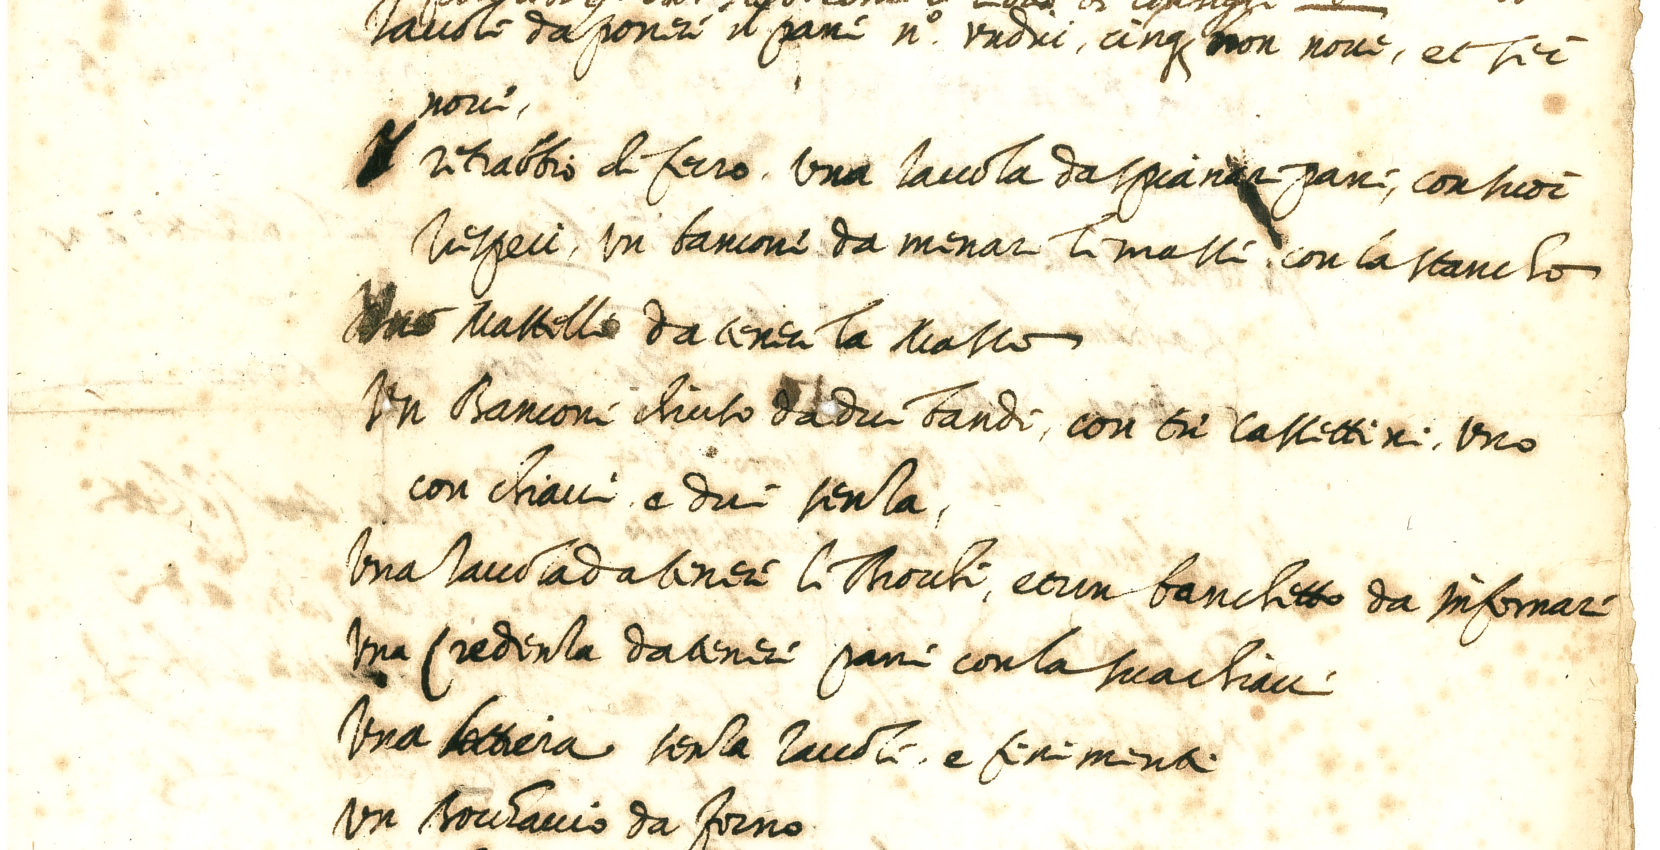 Tavole da poner il pane n.º undici, cinq; non nove, et sei
nove,
retrabbio di ferro. Una tavola da spianar pane, con suoi
trespeti, un bancone da menar le masse con la stanch
Uno Mastello da tener la Massa
Un Bancone chiuso da due bande, con tre cassettini, uno
con chiave e due senza,
Una tavola da tenere li et un banchetto da infornare
Una Credenza da tenere pane con la sua chiave
Una lettiera senza tavole. e finimenti
Un da forno